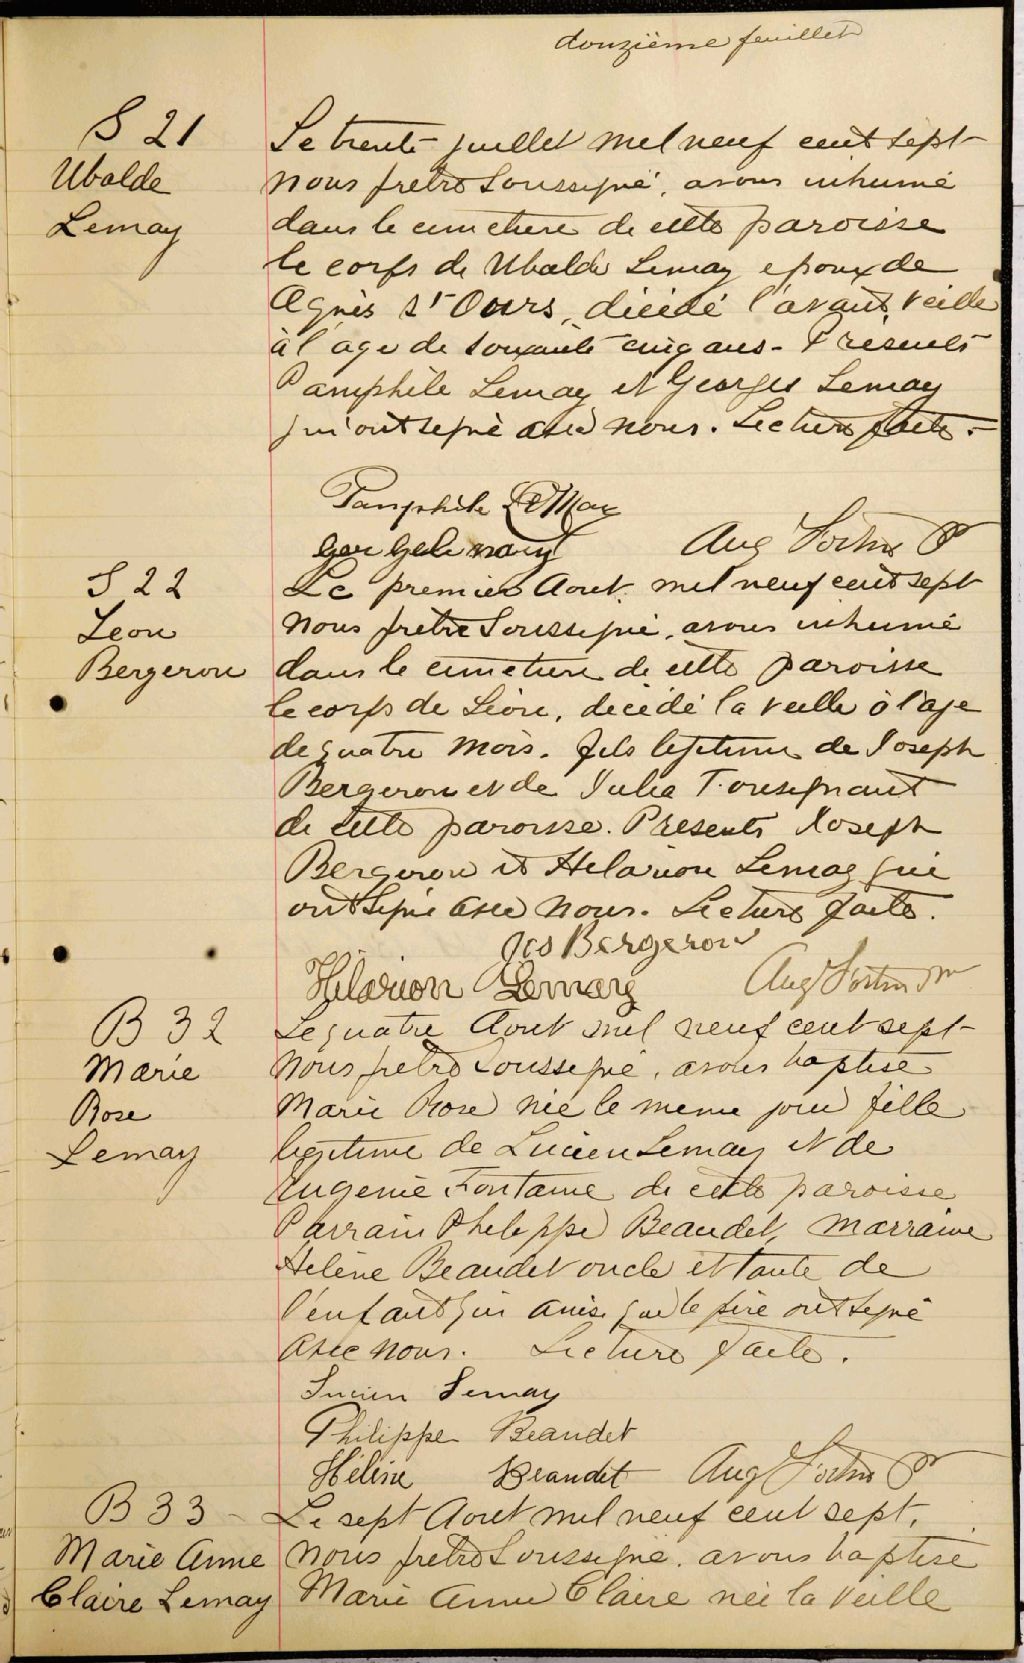 douzième feuillet
S 21
Ubalde
Lemay
Le trente juillet mil neuf cent sept
nous prêtre soussigné, avons inhumé
dans le cimetière de cette paroisse
le corps de Ubalde Lemay epoux de
Agnès St Ours, décédé l'avant veille
à l'age de soixante cinq ans - Présents
Pamphile Lemay et Georges Lemay
qui ont signé avec nous. Lecture faite.-
Pamphile LeMay
George Lemay Aug Fortin Ptr
S 22
Leon
Bergeron
Le premier Aout mil neuf cent sept
nous prêtre soussigné, avons inhumé
dans le cimetiere de cette paroisse
le corps de Léon, décédé la veille à l'age
de quatre mois. fils légitime de Joseph
Bergeron et de Julia Tousignant
de cette paroisse. Présents Joseph
Bergeron et Hilarion Lemay qui
ont signé avec nous. Lecture faite.
Jos Bergeron
Hilarion Lemay Aug Fortin Ptr
B 32
Marie
Rose
Lemay
Le quatre Aout mil neuf cent sept
nous prêtre soussigné, avons baptisé
Marie Rose née le meme jour fille
légitime de Lucien Lemay et de
Eugenie Fontaine de cette paroisse
Parrain Philippe Beaudet, marraine
Helène Beaudet oncle et tante de
l'enfant qui ainsi que le père ont signé
avec nous. Lecture faite.
Lucien Lemay
Philippe Beaudet
Hélène Beaudet Aug Fortin Ptr
B 33 -
Marie Anne
Claire Lemay
Le sept Aout mil neuf cent sept,
nous prêtre soussigné. avons baptisé
Marie Anne Claire née la veille